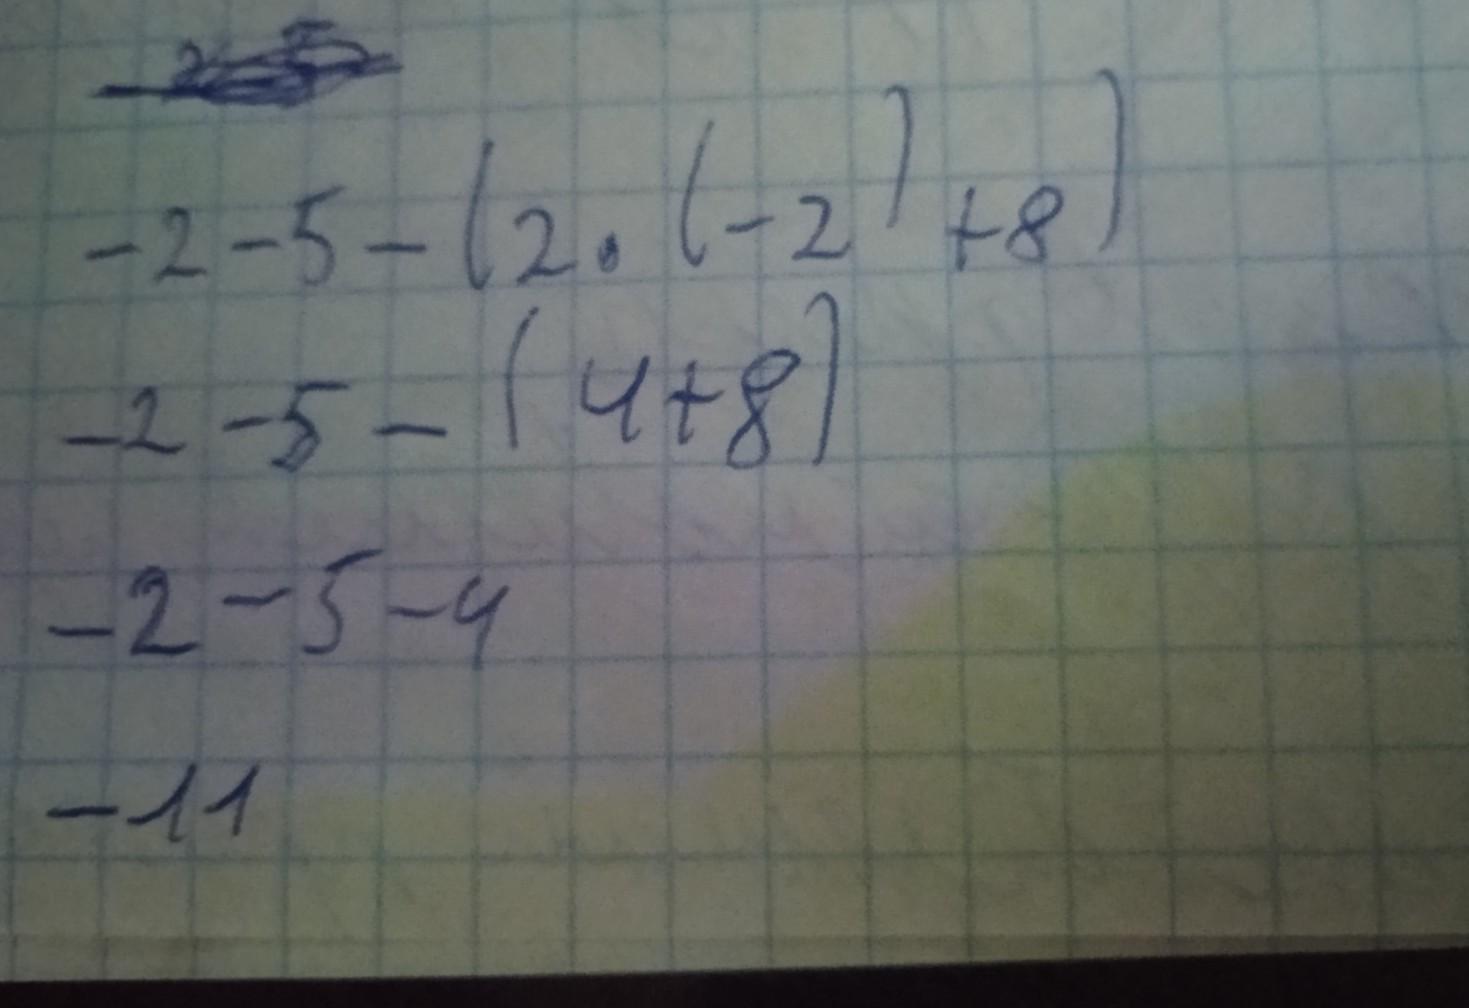 -2-5-(2·(-2)+8)
-2-5-(4+8)
-2-5-4
-11